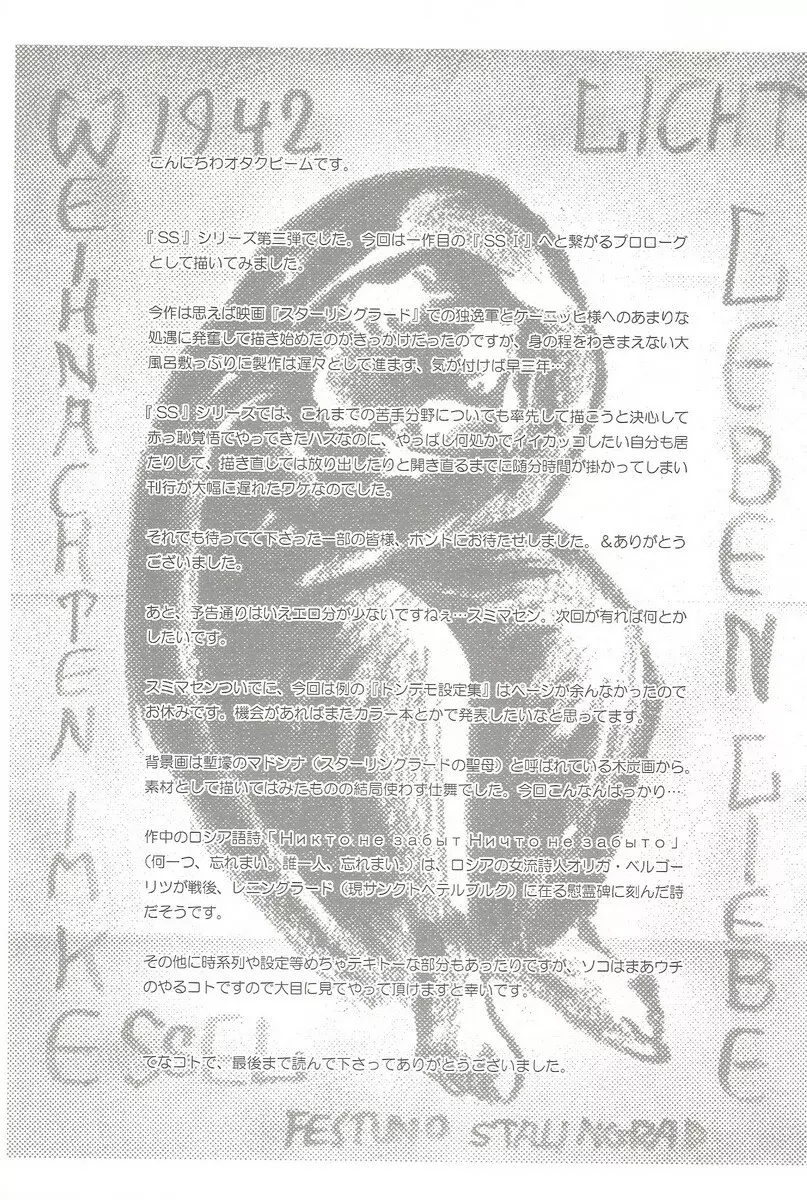 W 1942
LICHT
WEIHNACHTEN IM KESSEL
LEBEN LIEBE
こんにちわオタクビームです。
『SS』シリーズ第三弾でした。今回は一作目の『SSⅠ』へと繋がるプロローグ
として描いてみました。
今作は思えば映画『スターリングラード』での独逸軍とケーニッヒ様へのあまりな
処遇に発奮して描き始めたのがきっかけだったのですが、身の程をわきまえない大
風呂敷っぷりに製作は遅々として進まず、気が付けば早三年…
『SS』シリーズでは、これまでの苦手分野についても率先して描こうと決心して
赤っ恥覚悟でやってきたハズなのに、やっぱし何処かでイイカッコしたい自分も居
たりして、描き直しては放り出したりと開き直るまでに随分時間が掛かってしまい
刊行が大幅に遅れたワケなのでした。
それでも待ってて下さった一部の皆様、ホントにお待たせしました。＆ありがとう
ございました。
あと、予告通りはいえエロ分が少ないですねぇ…スミマセン。次回が有れば何とか
したいです。
スミマセンついでに、今回は例の『トンデモ設定集』はページが余んなかったので
お休みです。機会があればまたカラー本とかで発表したいなと思ってます。
背景画は塹壕のマドンナ（スターリングラードの聖母）と呼ばれている木炭画から。
素材として描いてはみたものの結局使わず仕舞でした。今回こんなんばっかり…
作中のロシア語詩「Никто не забыт Ничто не забыто」
（何一つ、忘れまい。誰一人、忘れまい。）は、ロシアの女流詩人オリガ・ベルゴー
リツが戦後、レニングラード（現サンクトペテルブルク）に在る慰霊碑に刻んだ詩
だそうです。
その他に時系列や設定等めちゃテキトーな部分もあったりですが、ソコはまあウチ
のやるコトですので大目に見てやって頂けますと幸いです。
でなコトで、最後まで読んで下さってありがとうございました。
FESTUNG STALINGRAD